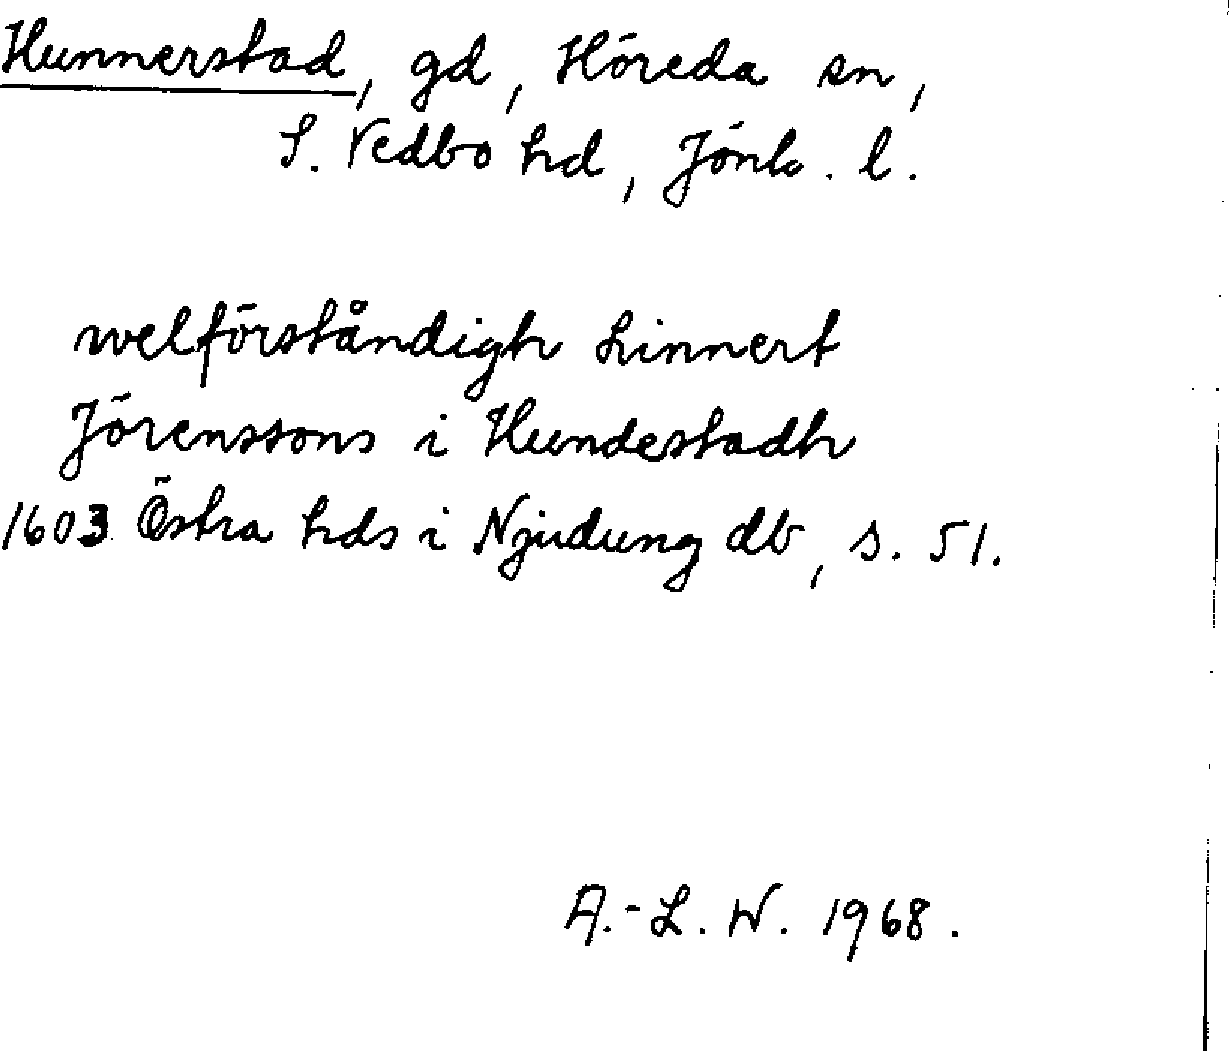 Hunnerstad, gd, Höreda sn,
S. Vedbo hd, Jönk. l.
welförståndigh Linnert
Jörenssons i Hundestadh
1603 Östra hds i Njudung db, s. 51.
A.-L. W. 1968.